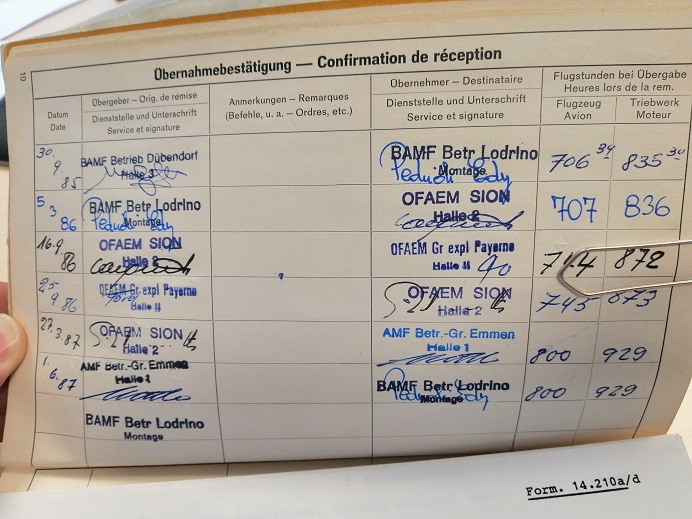 10
Übernahmebestätigung — Confirmation de réception
Datum
Date
Übergeber — Orig. de remise
Dienststelle und Unterschrift
Service et signature
Anmerkungen — Remarques
(Befehle, u. a. — Ordres, etc.)
Übernehmer — Destinataire
Dienststelle und Unterschrift
Service et signature
Flugstunden bei Übergabe
Heures lors de la rem.
Flugzeug
Avion
Triebwerk
Moteur
30. 9 85
BAMF Betrieb Dübendorf
Halle 3
BAMF Betr Lodrino
Montage
706 34
835 30
5 3 86
BAMF Betr Lodrino
Montage
OFAEM SION
Halle 2
707
836
16.9 86
OFAEM SION
Halle 2
OFAEM Gr expl Payerne
Halle II
744
872
25 9 86
OFAEM Gr. expl Payerne
Halle II
OFAEM SION
Halle 2
745
873
27.3.87
OFAEM SION
Halle 2
AMF Betr.-Gr. Emmen
Halle 1
800
929
1. 6. 87
AMF Betr.-Gr. Emmen
Halle 1
BAMF Betr Lodrino
Montage
800
929
BAMF Betr Lodrino
Montage
Form. 14.210a/d